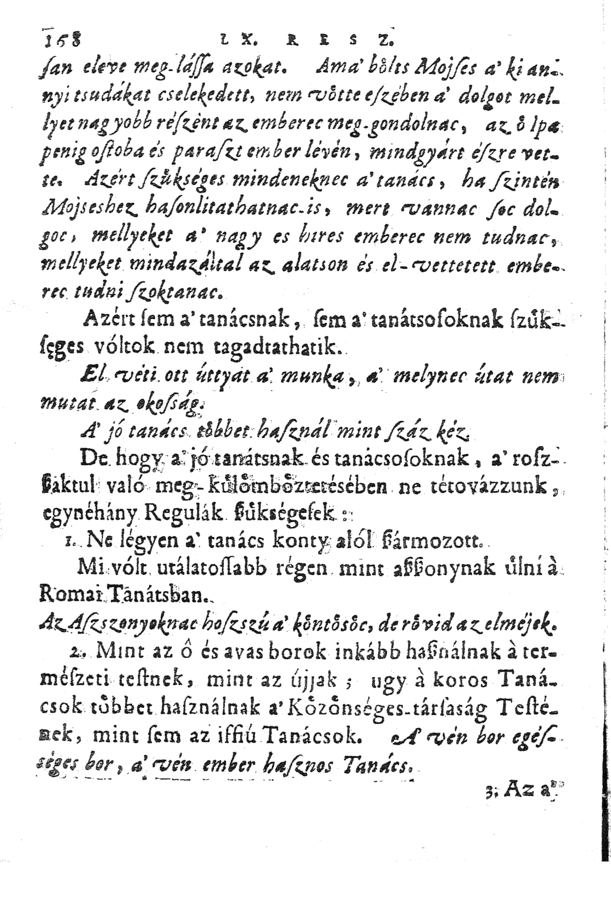 168 IX. RESZ.
ſan eleve meg-láſſa azokat. Ama' bo̊lts Mojſes a' ki an-
nyi tsudákat cselekedett, nem vo̊tte eſzében a' dolgot mel-
lyet nagyobb réſzént az emberec meg-gondolnac, az o̊ Ipa
penig oſtoba és paraſzt ember lévén, mindgyárt éſzre vet-
te. Azért ſzu̇kséges mindeneknec a' tanács, ha ſzintén
Mojseshez haſonlitathatnac-is, mert vannac ſoc dol-
goc, mellyeket a' nagy es hires emberec nem tudnac,
mellyeket mindazáltal az alatson és el-vettetett embe-
rec tudni ſzoktanac.
Azért ſem a' tanácsnak, ſem a' tanátsoſoknak ſzu̇k-
ſęges vóltok nem tagadtathatik.
El véti ott úttyát a' munka, a' melynec útat nem
mutat az okoſság.
A' jó tanács to̊bbet haſznál mint ſzáz kéz.
De hogy a' jó tanátsnak és tanácsoſoknak, a' roſz-
ßaktul való meg-ku̇lo̊mbo̊ztetésében ne tétovázzunk,
egynéhány Regulák ßukségeſek:
1. Ne légyen a' tanács konty alól ßármozott.
Mi vólt utálatoſſabb régen mint aßßonynak u̇lni à
Romai Tanátsban.
Az Aſzszonyoknac hoſzszú a' ko̊nto̊so̊c, de ro̊vid az elméjek.
2. Mint az ô és avas borok inkább haßnálnak à ter-
méſzeti teſtnek, mint az újjak; ugy à koros Taná-
csok to̊bbet haſználnak a' Ko̊zo̊nséges-tárſaság Teſté-
nek, mint ſem az iffiú Tanácsok. A' vén bor egéſ-
séges bor, a' vén ember haſznos Tanács.
3. Az a'